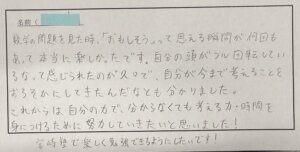 名前(
数学の問題を見た時、「おもしろそう」って思える瞬間が何回も
あって本当に楽しかったです。自分の頭がフル回転してい
るなって感じられたのが久々で、自分が今まで考えることを
おろそかにしてきたんだなとも分かりました。
これからは自分の力で、分からなくても考える力・時間を
身につけるために努力していきたいと思いました!
塾で楽しく勉強できるようにしたいです!